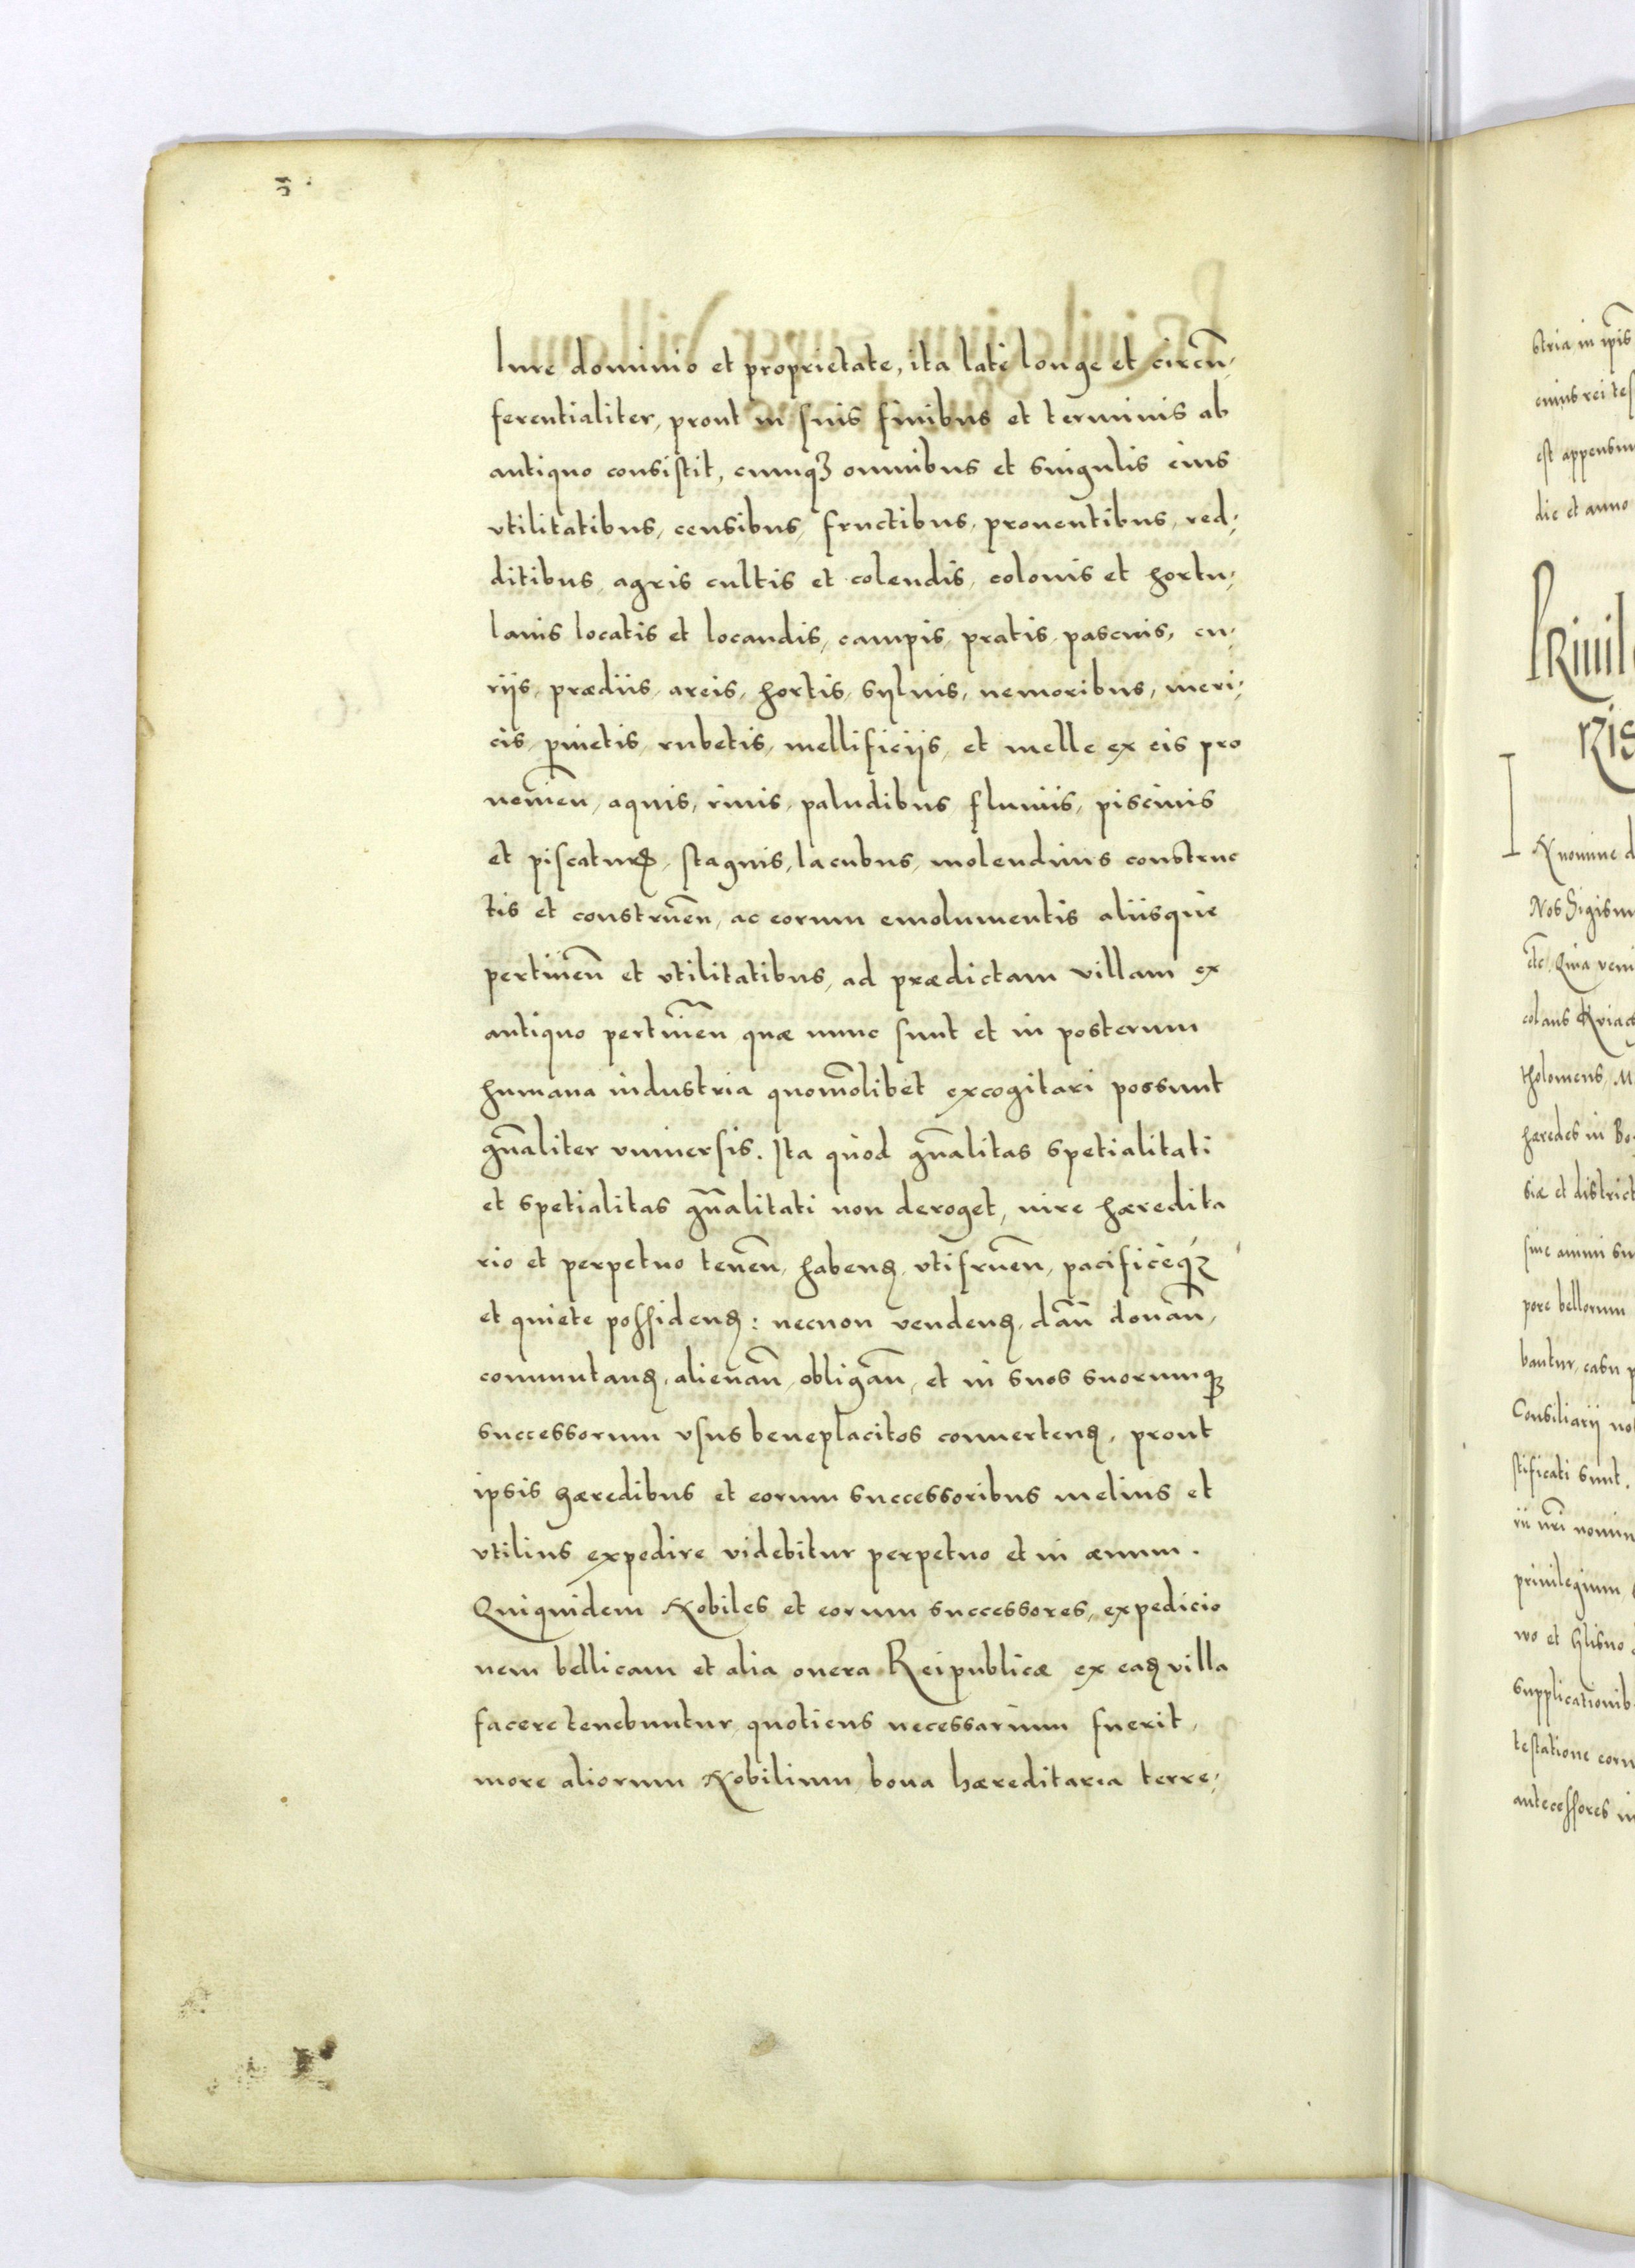 Iure dominio et proprietate, ita late longe et circũ-
ferentialiter, prout in suis finibus et terminis ab
antiquo consistit, cumqꝫ omnibus et singulis eius
vtilitatibus, censibus, fructibus, prouentibus, red-
ditibus, agris cultis et colendis, colonis et hortu-
lanis locatis et locandis, campis, pratis, pascuis, cu-
riis, prædiis, areis, hortis, sylvis, nemoribus, meri-
cis, pinetis, rubetis, mellificiis, et melle ex eis pro
uenieñ, aquis, riuis, paludibus, fluuiis, piscinis
et piscaturꝭ, stagnis, lacubus, molendinis construc
tis et construeñ, ac eorum emolumentis aliisque
pertineñ et vtilitatibus, ad prædictam villam ex
antiquo pertineñ quæ nunc sunt et in posterum
humana industria quom̃olibet excogitari possunt
gñaliter vniuersis. Ita quòd gñalitas spetialitati
et spetialitas gñalitati non deroget, iure hæredita
rio et perpetuo teneñ, habenꝭ, vtifrueñ, pacificeqꝫ
et quiete possidenꝭ: necnon vendenꝭ, dañ donañ,
commutanꝭ, alienañ, obligañ, et in suos suorumqꝫ
successorum vsus beneplacitos conuertenꝭ, prout
ipsis hæredibus et eorum successoribus melius et
vtilius expedire videbitur perpetuo et in æuum.
Quiquidem Nobiles et eorum successores, expedicio
nem bellicam et alia onera Reipublicæ ex eaꝭ villa
facere tenebuntur, quotiens necessarium fuerit,
more aliorum Nobilium, bona hæreditaria terre-
stria in ip̃is
cuius rei tes
est appensum
die et anno
PRiuil
Ris
IN nomine d
Nos Sigism
etc̃. Quia veni
colaus
tholomeus, M
hæredes in Bo
siæ et district
siue animi su
pore bellorum
bantur, casu p
Consiliarij no
stificati sunt.
rii nr̃i nomin
priuilegium
wo et
supplicationib
testatione coru
antecessores in